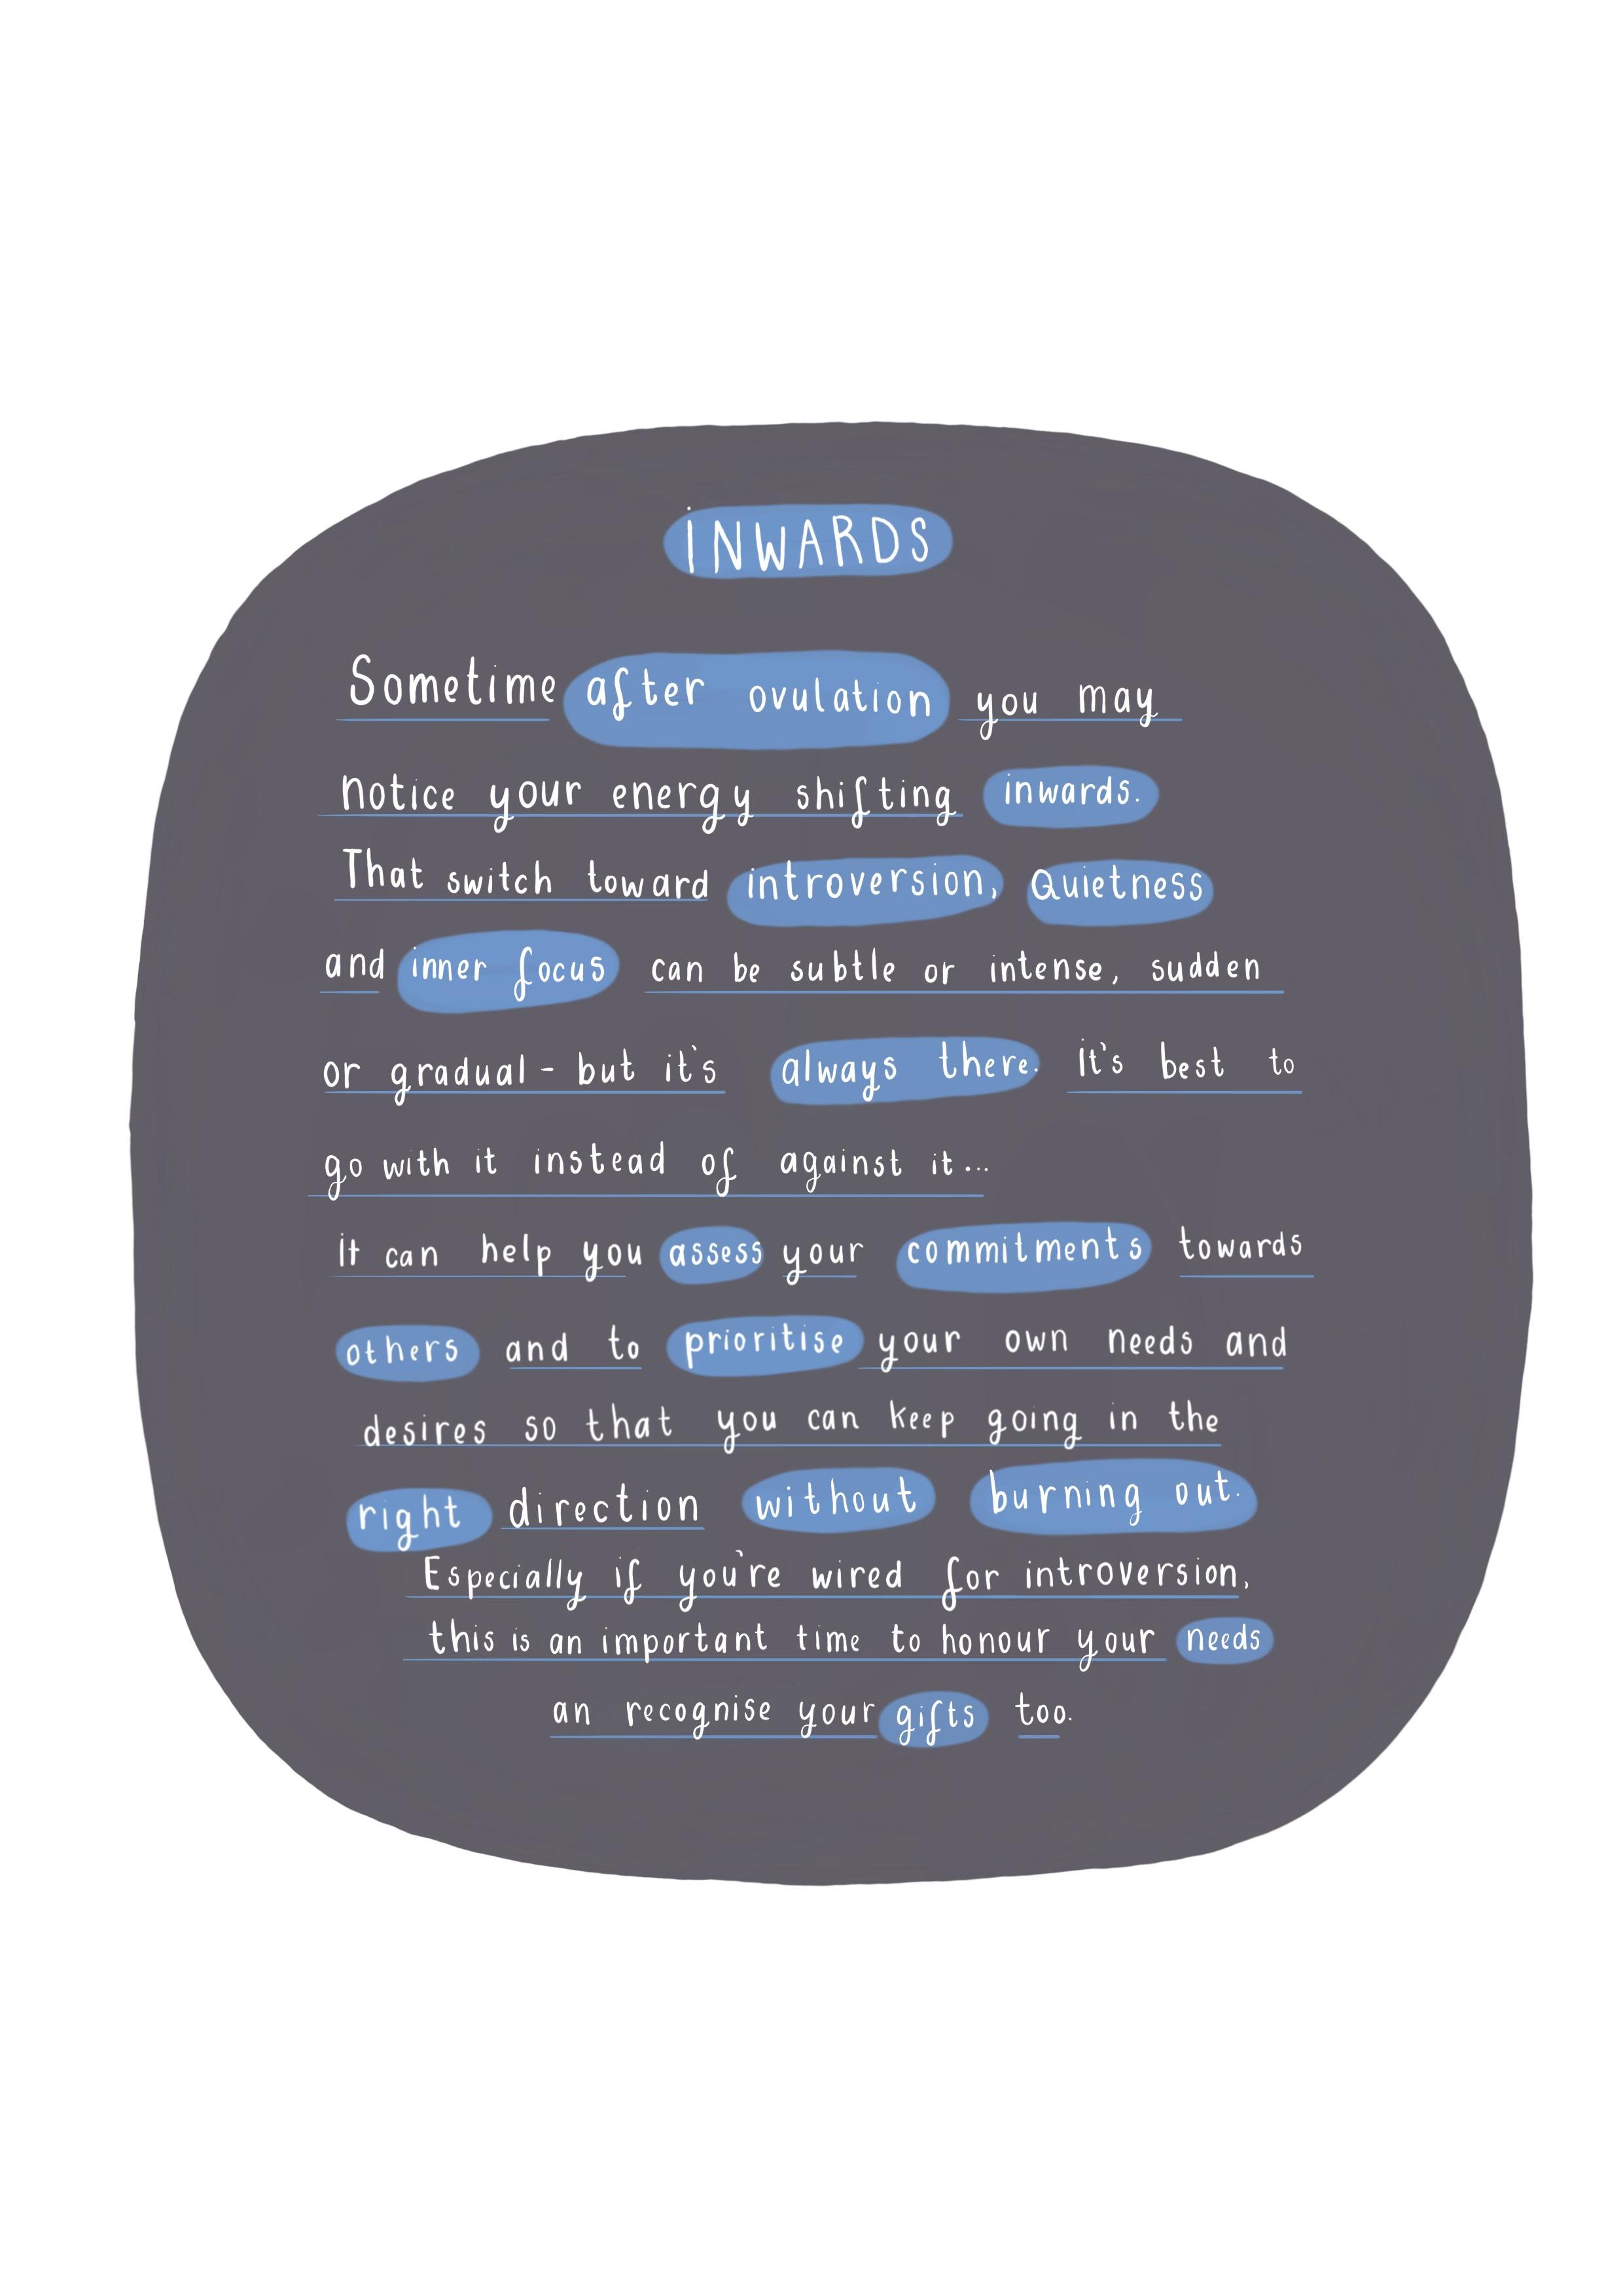 INWARDS
Sometime after ovulation you may
notice your energy shifting inwards.
That switch toward introversion, Quietness
and inner focus can be subtle or intense, sudden
or gradual - but it's always there. it's best to
go with it instead of against it...
it can help you assess your commitments towards
others and to prioritise your own needs and
desires so that you can keep going in the
right direction without burning out.
Especially if you're wired for introversion,
this is an important time to honour your needs
an recognise your gifts too.